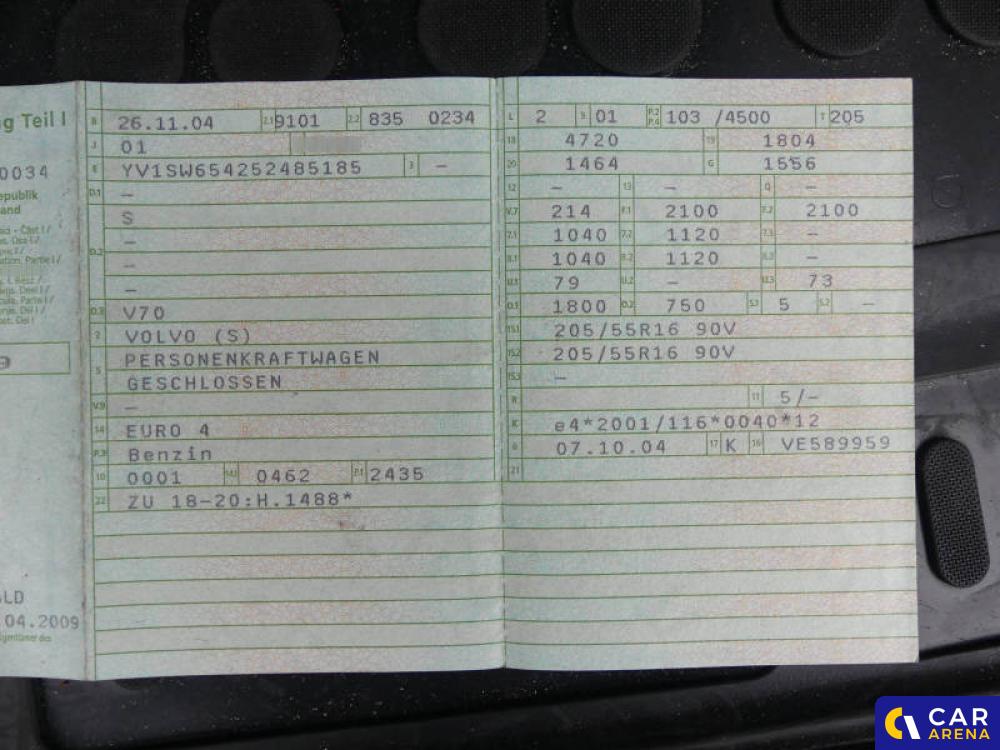 g Teil I
0034
epublik
and
LD
.04.2009
B 26.11.04 2.1 9101 2.2 835 0234
J 01
E YV1SW654252485185 3 –
D.1 –
S
D.2 –
–
–
D.3 V70
2 VOLVO (S)
5 PERSONENKRAFTWAGEN
GESCHLOSSEN
V.9 –
14 EURO 4
P.3 Benzin
10 0001 14.1 0462 P.1 2435
22 ZU 18-20:H.1488*
L 2 9 01 P.2 P.4 103 /4500 T 205
18 4720 19 1804
20 1464 G 1556
12 – 13 – Q –
V.7 214 F.1 2100 F.2 2100
7.1 1040 7.2 1120 7.3 –
8.1 1040 8.2 1120 8.3 –
U.1 79 U.2 – U.3 73
O.1 1800 O.2 750 S.1 5 S.2 –
15.1 205/55R16 90V
15.2 205/55R16 90V
15.3 –
R 11 5/–
K e4*2001/116*0040*12
6 07.10.04 17 K 16 VE589959
21
CAR
ARENA